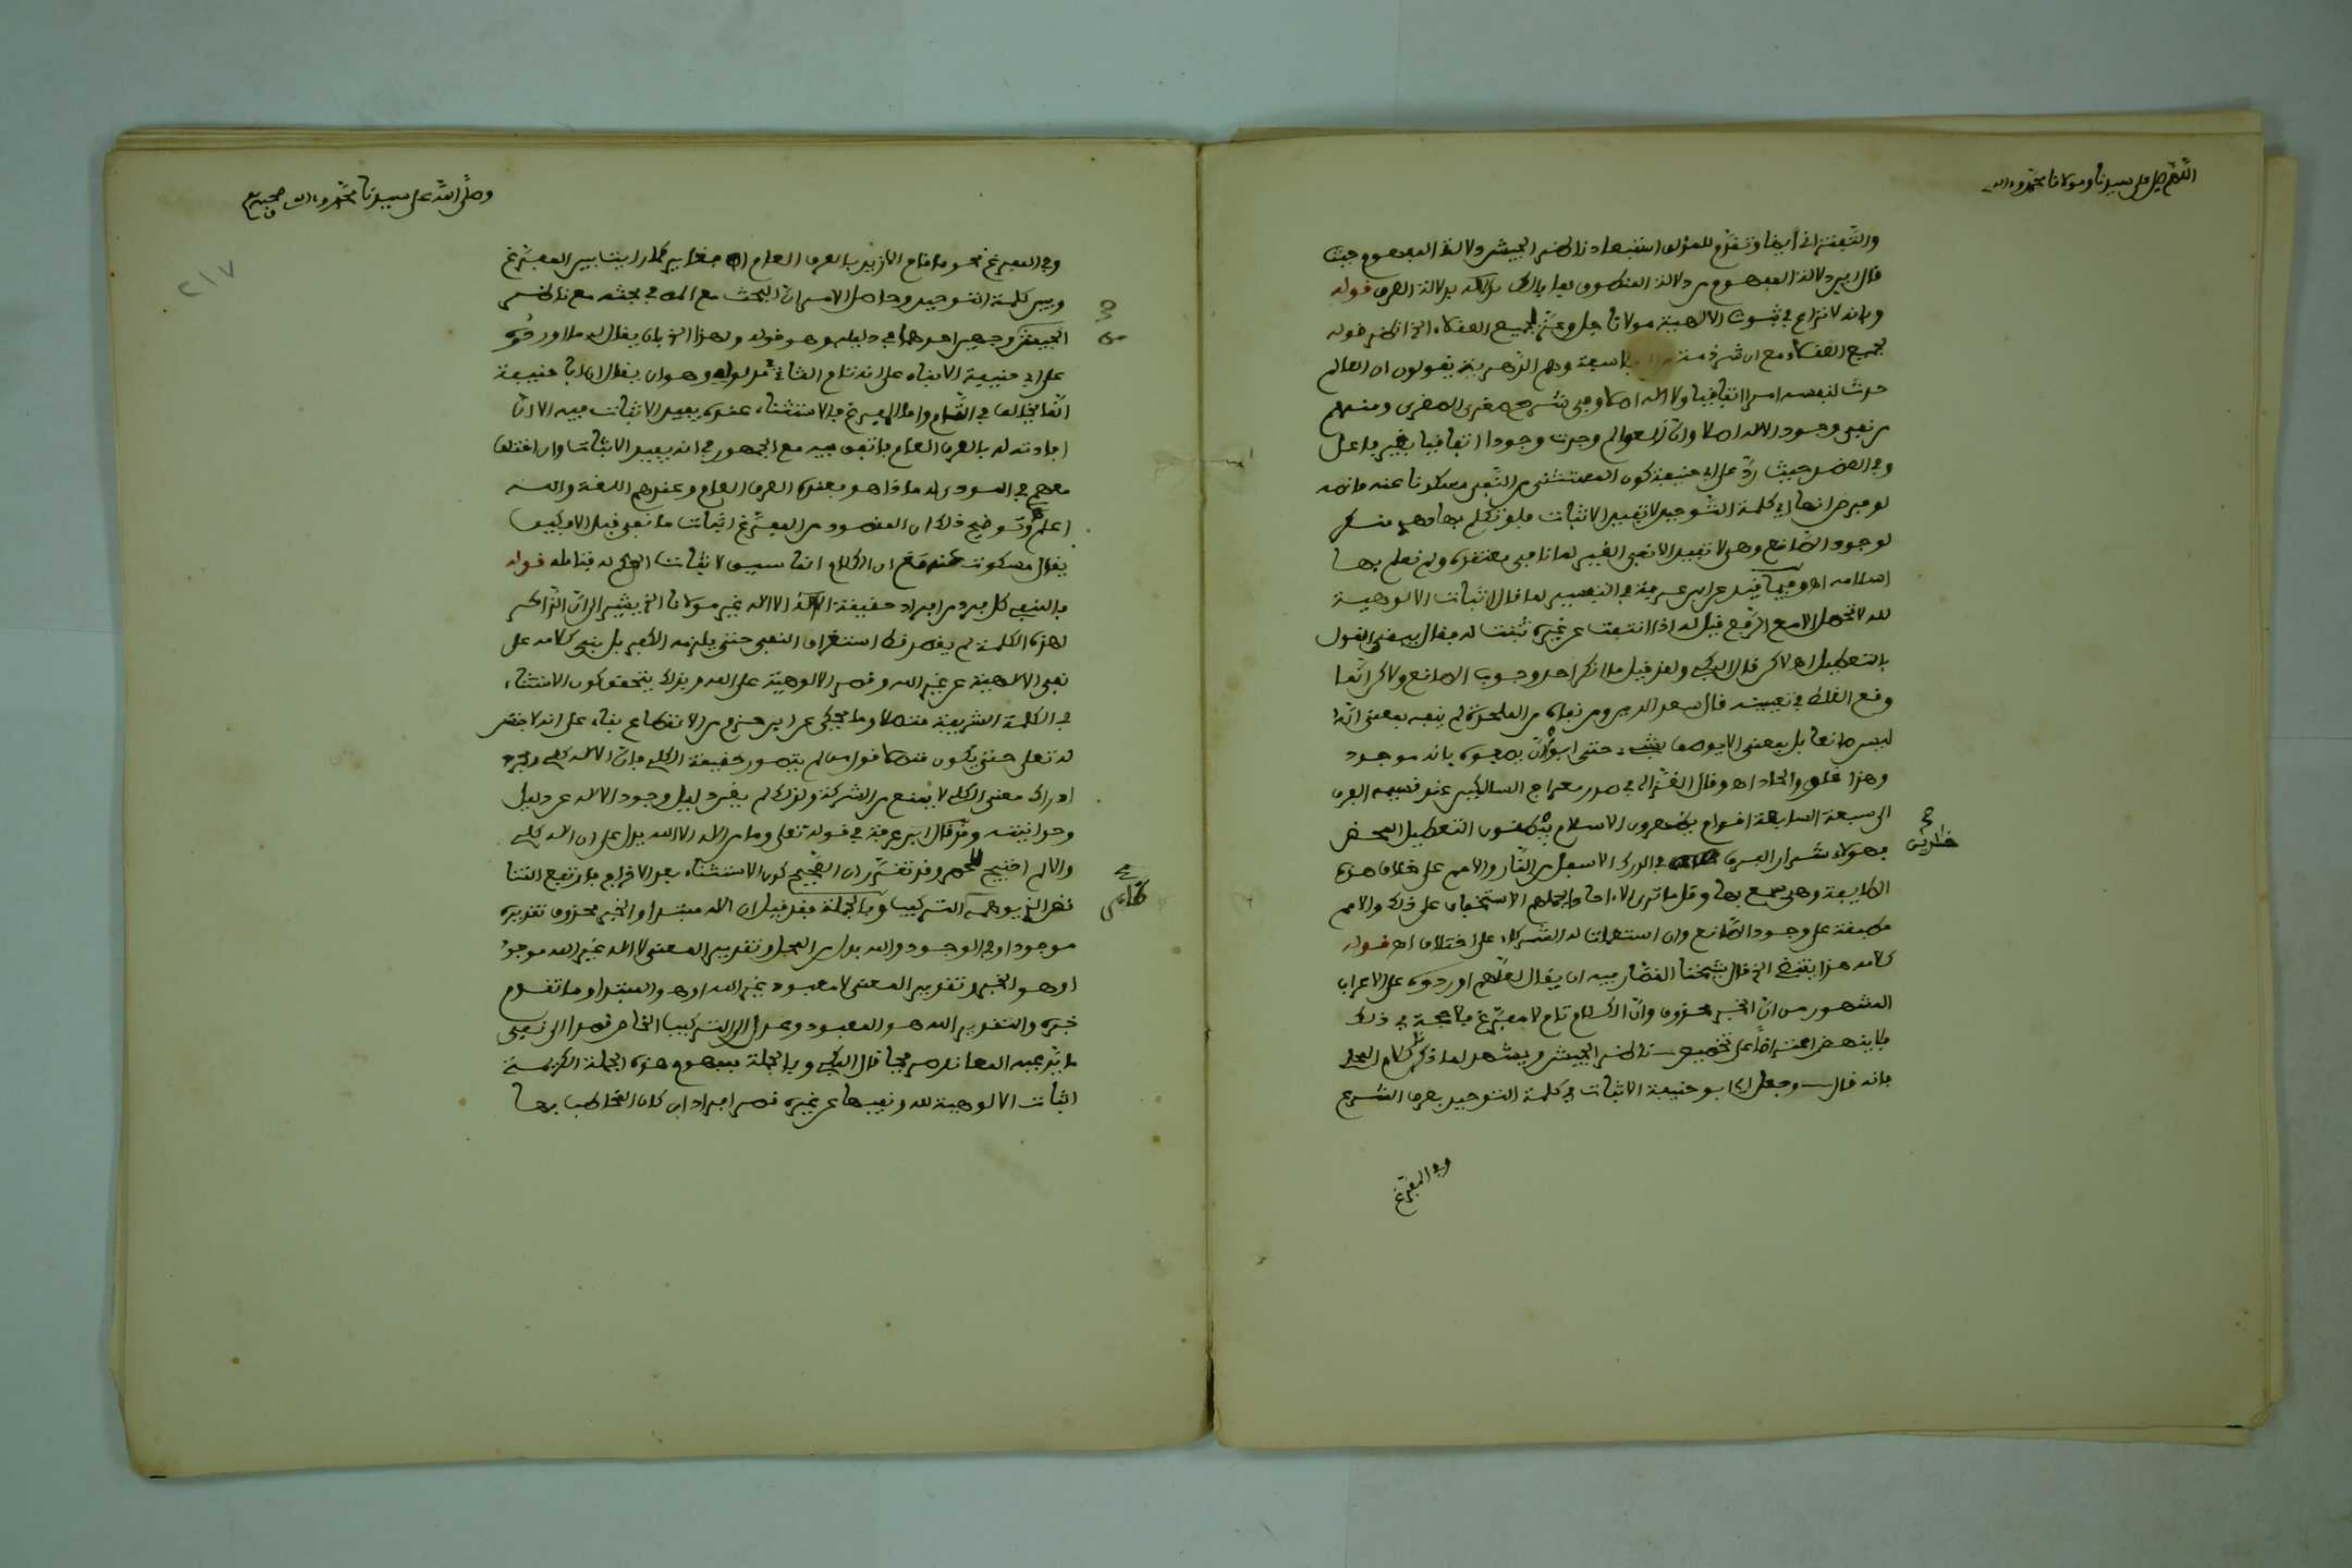 اللهم صل على سيدنا ومولانا محمد وءاله
والتفتزاني أيضا وتقدم للمؤلف استبعاد ناظر الجيش دلالة المفهوم حيث
قال اين دلالة المفهوم من دلالة المنطوق فما بالك بدلالة العرف قوله
وبانه لا نزاع في ثبوت الالهية مولانا جل وعز لجميع العقلاء الخ انظر قوله
لجميع العقلاء مع ان شرذمة من الفلاسفة وهم الدهرية يقولون ان العالم
حدث لنفسه امرا اتفاقيا ولا اله اصلا وفي شرح صغرى الصغرى ومنهم
من نفى وجود الاله اصلا وان العوالم وجدت وجودا اتفاقيا بغير فاعل
وفي حيث رد على ابي حنيفة كون المستثنى من النفي مسكوتا عنه ما نصه
لو فرض انها اي كلمة التوحيد لا تفيد الاثبات فلو تكلم بها دهري منكر
لوجود الصانع وهي لا تفيد الا نفي الغير لما نافى معتقده ولم نعلم بها
اسلامه اه وفيما قيد عن ابن عرفة في التفسير لما قال اثبات الالوهية
لله لا تحصل الا مع الرفع قيل له اذا انتفت عن غيره ثبتت له فقال يبقى القول
بالتعطيل اه لاكن قال البكي ولقد قيل ما انكر احد وجوب الصانع ولاكن انما
وقع الغلط في تعيينه قال سعد الدين ومن نفاه من الملحدة لم ينفه بمعنى انه
ليس صانعا بل بمعنى لا يوصف بشيء حتى ابوا ان يصفوه بانه موجود
وهذا غلو والحاد اه وقال الغزالي في صدر معراج السالكين عند تقسيمه الفرق
الى سبعة السابعة اقوام يظهرون الاسلام ويبطنون التعطيل المحض
فهؤلاء شرار الفرق في الدرك الاسفل من النار والامم على خلاف هذه
الطايفة وهي سمع بها وقل ما ترى الا ءاحادا يحملهم الاستخفاف على ذلك والامم
مطبقة على وجود الصانع وان استعملت له الشركاء على اختلاف اه قوله
كلامه هذا يقتضي الخ قال شيخنا القصار فيه ان يقال لعلهم اوردوه على الاعراب
المشهور من ان الخبر محذوف وان الكلام تام لا مفرغ في ذلك
فلا ينهض اعتراضا على ناظر الجيش ويشهد لما ذكر كلام المحلي
فانه قال وجعل ابو حنيفة الاثبات في كلمة التوحيد بعرف الشرع
وفي المفرغ
وصلى الله على سيدنا محمد وءاله وصحبه
٢١٧
وفي المفرغ نحو ما قام الا زيد بالعرف العام اه فغاير كما رايت بين المفرغ
وبين كلمة التوحيد وحاصل الامر ان البحث مع المص في بحثه مع ناظر
الجيش من وجهين احدهما في دليله وهو قوله ولهذا الخ بان يقال له ما اوردوه
على ابي حنيفة الا بناء على انه تام الثاني في مدلوله وهو ان يقال ان ابا حنيفة
انما يخالف في التام واما المفرغ فالاستثناء عنده يفيد الاثبات فيه الا ان
افادته له بالعرف العام فاتفق فيه مع الجمهور في انه يفيد الاثبات وان اختلف
معهم في المودي له ماذا هو فعنده العرف العام وعندهم اللغة والله
اعلم وتوضيح ذلك ان المقصود من المفرغ اثبات ما نفي قبل الا فكيف
يقال مسكوت عنه مع ان الكلام انما سيق لاثبات الحكم له فتامله قوله
فالنفي كل فرد من افراد حقيقة الاله الا اله غير مولانا الخ يشير الى ان الذاكر
لهذه الكلمة لم يقصد قط استغراق النفي حتى يلزمه الكفر بل بنى كلامه على
نفي الالهية عن غير الله وقصر الالوهية على الله وبذلك يتحقق كون الاستثناء
في الكلمة الشريفة متصلا وما يحكى عن ابن حزم من الانقطاع بناء على انه لا جنس
له تعلى حتى يكون متصلا قول من لم يتصور حقيقة الكلي فان الاله كلي ومجرد
ادراك معنى الكلي لا يمنع من الشركة ولذلك لم يغن دليل وجود الاله عن دليل
وحدانيته وقد قال ابن عرفة في قوله تعلى وما من الاه الا الله يدل على ان الاله كلي
والا لم احتيج للحصر وقد تقرر ان الصحيح كون الاستثناء بعد الاخراج فارتفع التناقض
الذي يوهمه التركيب وبالجملة فقد قيل ان الاه مبتدا والخبر محذوف تقديره
موجود او في الوجود والله بدل من المحل وتقدير المعنى لا اله غير الله موجود
او هو الخبر وتقدير المعنى لا معبود غير الله او هو المبتدا وما تقدم
خبره والتقدير الله هو المعبود وعدل الى التركيب الخاص قصدا الى نفي
ما يدعيه المعاند صريحا قال البكي وبالجملة فمفهوم هذه الجملة الكريمة
اثبات الالوهية لله ونفيها عن غيره قصر افراد ان كان المخاطب بها